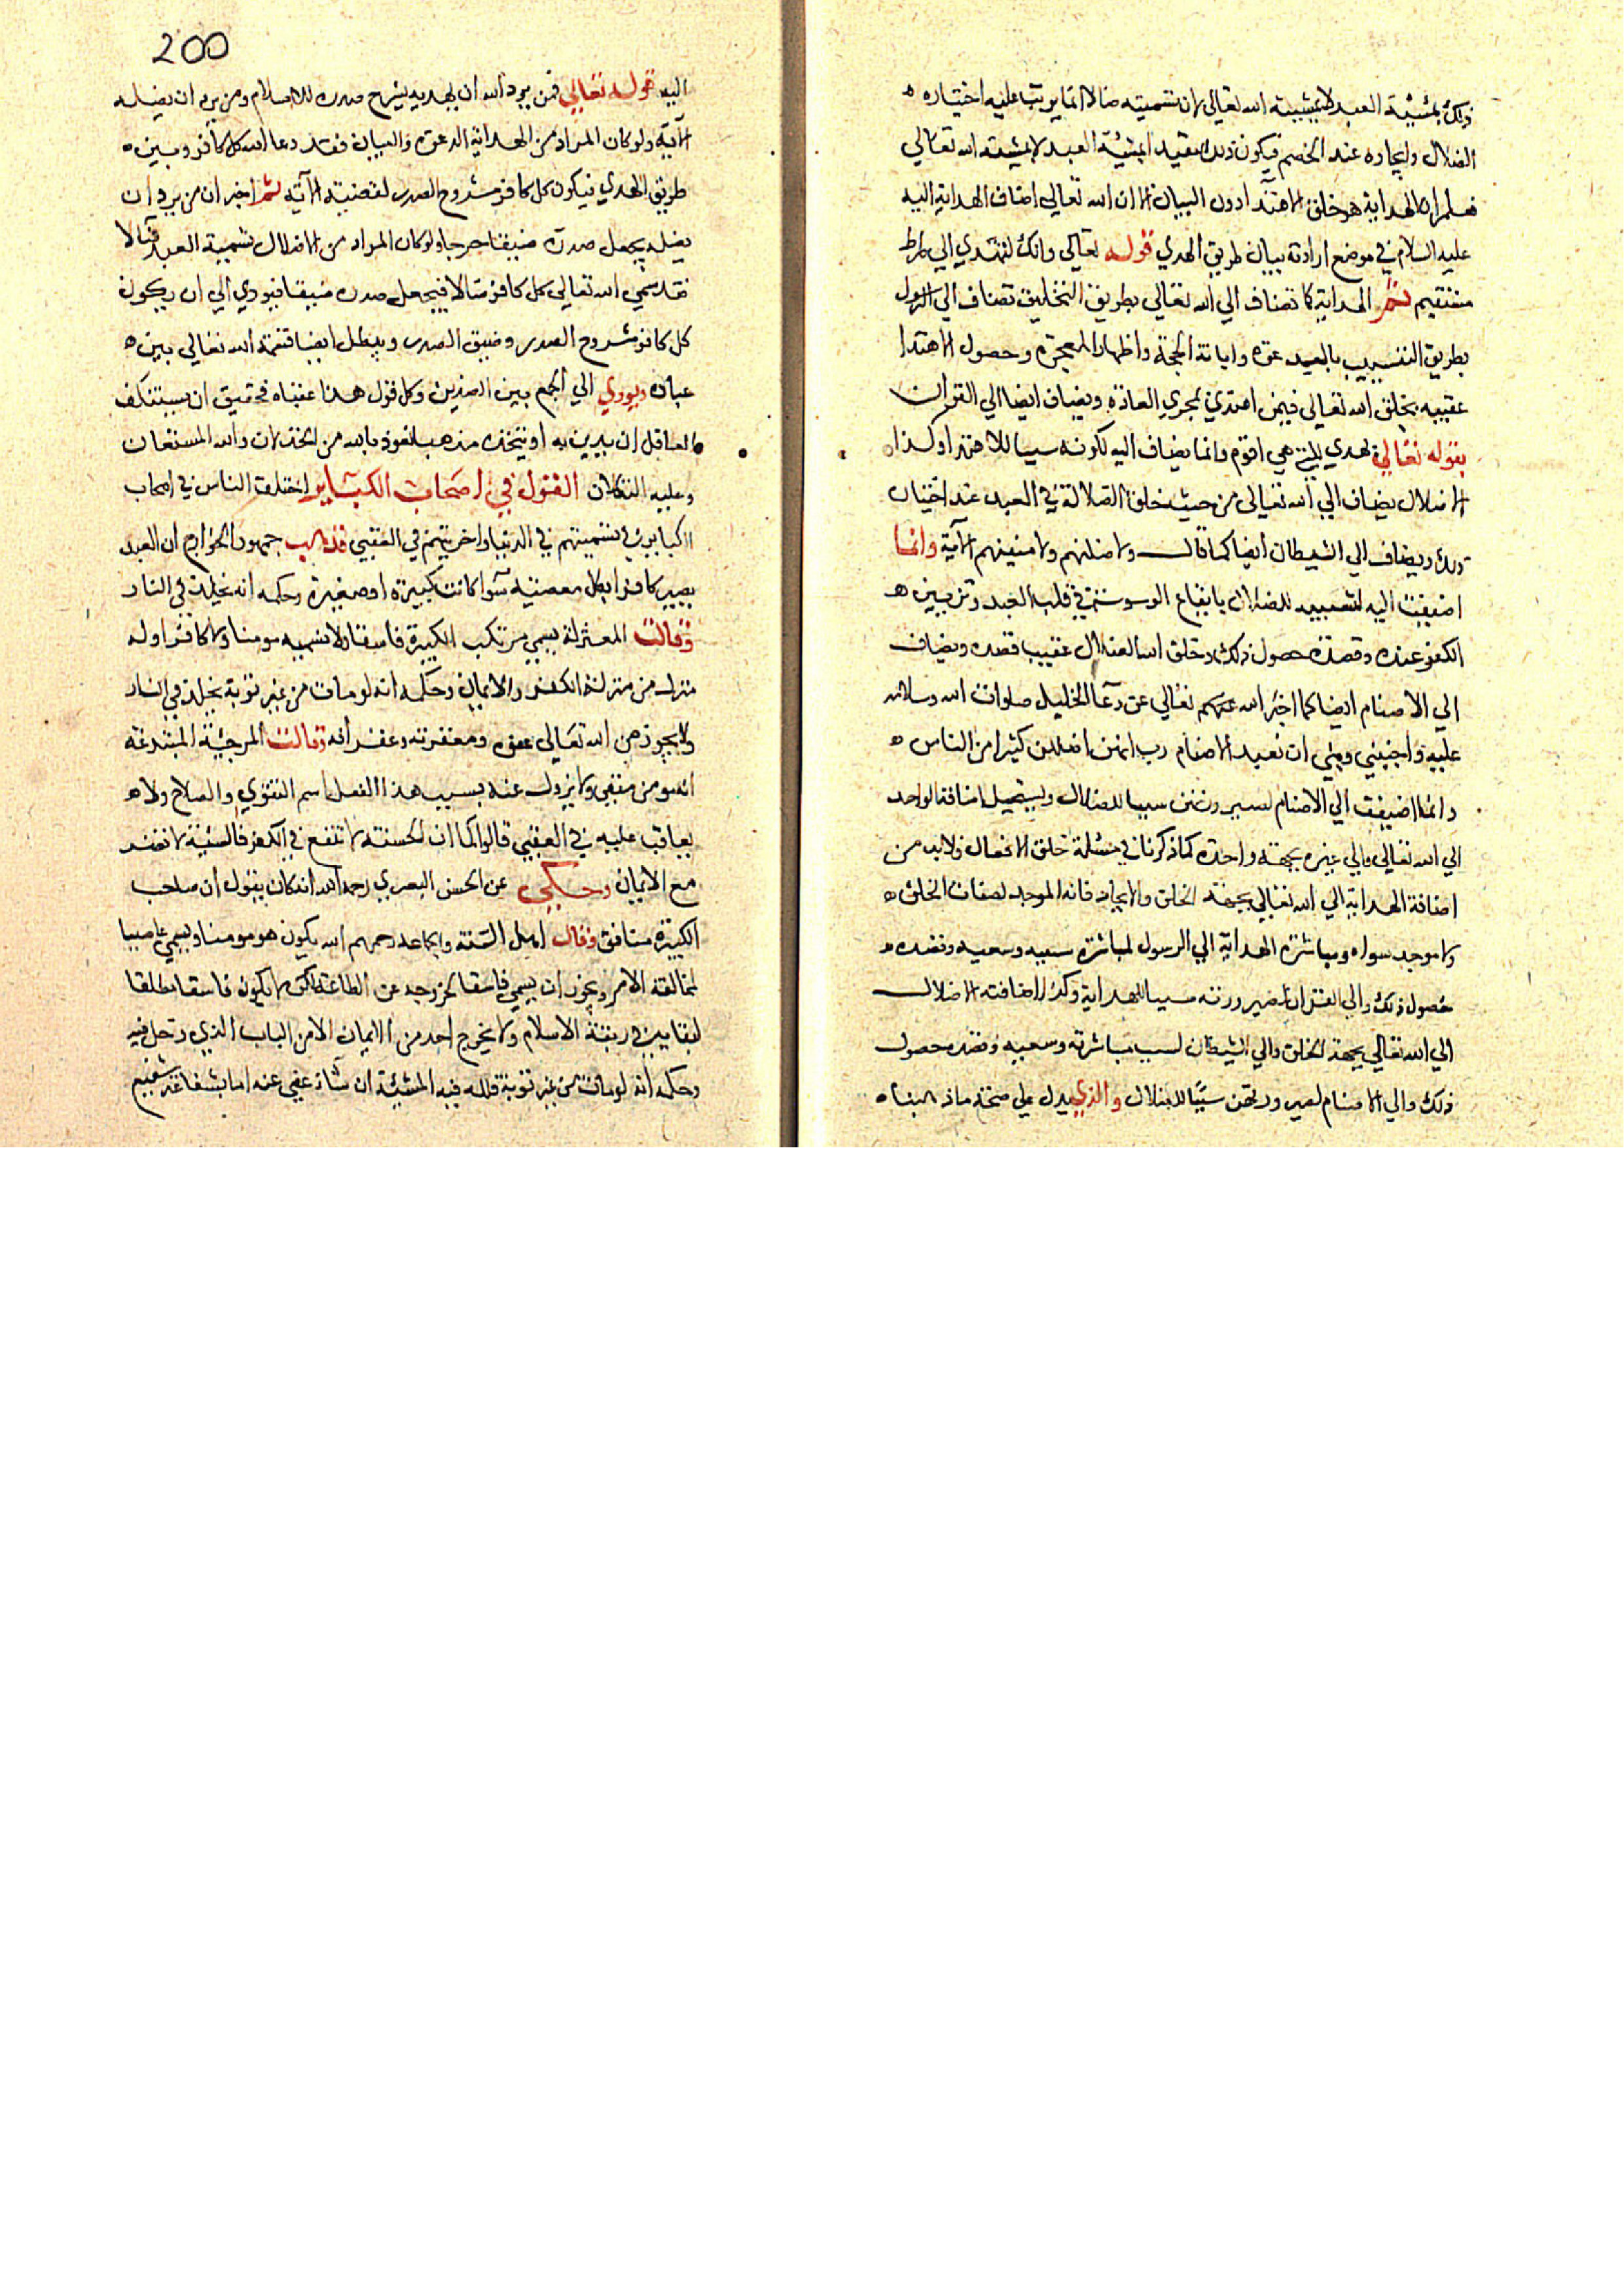 ذلك بمشيئة العبد لا بمشيئة الله تعالى لان تسميته ضالا انما يترتب عليه اختياره
الضلال وايجاده عند الخصم فيكون ذلك بمشيئة العبد لا بمشيئة الله تعالى
فعلم ان الهداية هو خلق الاهتدا دون البيان الا ان الله تعالى اضاف الهداية اليه
عليه السلام في موضع ارادته بيان طريق الهدي قوله تعالى وانك لتهدي الي صراط
مستقيم ثم الهداية كما تضاف الي الله تعالى بطريق التخليق تضاف الي الرسول
بطريق التسبيب بالدعوة وابانة الحجة واظهار المعجزة وحصول الاهتدا
عقيبه بخلق الله تعالى فيمن اهتدي بمجري العادة ويضاف ايضا الي القران
بقوله تعالى يهدي للتي هي اقوم وانما يضاف اليه لكونه سببا للاهتدا وكذا
الاضلال يضاف الي الله تعالى من حيث خلق الضلالة في العبد عند اختيار
ذلك ويضاف الي الشيطان ايضا كما قال ولاضلنهم ولامنينهم الآية وانما
اضيفت اليه لتسببه للضلال بايقاع الوسوسة في قلب العبد وتزيين
الكفر عنده وقصده حصول ذلك وخلق الله الضلال عقيب قصده ويضاف
الي الاصنام ايضا كما اخبر الله تعالى عن دعا الخليل صلوات الله وسلامه
عليه واجنبني وبني ان نعبد الاصنام رب انهن اضللن كثيرا من الناس
وانما اضيفت الي الاصنام لصيرورتهن سببا للضلال ويستحيل اضافة الواحد
الي الله تعالى والي غيره بجهة واحدة كما ذكرنا في مسئلة خلق الافعال فلابد من
اضافة الهداية الي الله تعالى بجهة الخلق والايجاد فانه الموجد لصفات الخلق
ولا موجد سواه ومباشرة الهداية الي الرسول لمباشرة سببه وسعيه وقصده
حصول ذلك والي القران لصيرورته سببا للهداية وكذا اضافة الاضلال
الي الله تعالى بجهة الخلق والي الشيطان لسبب مباشرته وسعيه وقصده حصول
ذلك والي الاصنام لصيرورتهن سببا للضلال والذي يدل علي صحة ماذهبنا
200
اليه قوله تعالى فمن يرد الله ان يهديه يشرح صدره للاسلام ومن يرد ان يضله
الآية ولو كان المراد من الهداية الدعوة والبيان فقد دعا الله كل كافر وبين
طريق الهدي فيكون كل كافر مشروح الصدر لقضية الآية ثم اخبر ان من يرد ان
يضله يجعل صدره ضيقا حرجا ولو كان المراد من الاضلال تسمية العبد ضالا
فقد سمي الله تعالى كل كافر ضالا فيجعل صدره ضيقا فيودي الي ان يكون
كل كافر مشروح الصدر وضيق الصدر ويبطل ايضا قسمة الله تعالى بين
عباده ويودي الي الجمع بين الضدين وكل قول هذا عقباه فحقيق ان يستنكف
العاقل ان يدين به او يتخذه مذهبا نعوذ بالله من الخذلان والله المستعان
وعليه التكلان القول في اصحاب الكبائر اختلف الناس في اصحاب
الكبائر في تسميتهم في الدنيا واحريتهم في العقبي فذهب جمهور الخوارج ان العبد
يصير كافرا بكل معصية سوا كانت كبيرة او صغيرة وحكمه انه يخلد في النار
وقالت المعتزلة يسمي مرتكب الكبيرة فاسقا ولا نسميه مومنا ولا كافرا وله
منزلة من منزلة الكفر والايمان وحكمه انه لو مات من غير توبة يخلد في النار
ولا يجوز من الله تعالى عفوه ومغفرته وغفرانه وقالت المرجئة المبتدعة
انه مومن متقي ولا يزول عنه بسبب هذا الفعل اسم التقوي والصلاح ولا
يعاقب عليه في العقبي قالوا كما ان الحسنة لا تنفع في الكفر فالسيئة لا تضر
مع الايمان وحكي عن الحسن البصري رحمه الله انه كان يقول ان صاحب
الكبيرة منافق وقال اهل السنة والجماعة رحمهم الله يكون هو مومنا ويسمي عاصيا
لمخالفة الامر ويجوز ان يسمي فاسقا لخروجه عن الطاعة لكن لا يكون فاسقا مطلقا
لبقايه في ربقة الاسلام ولا يخرج احد من الايمان الا من الباب الذي دخل فيه
وحكمه انه لو مات من غير توبة فلله فيه المشيئة ان شاء عفي عنه اما بشفاعة شفيع